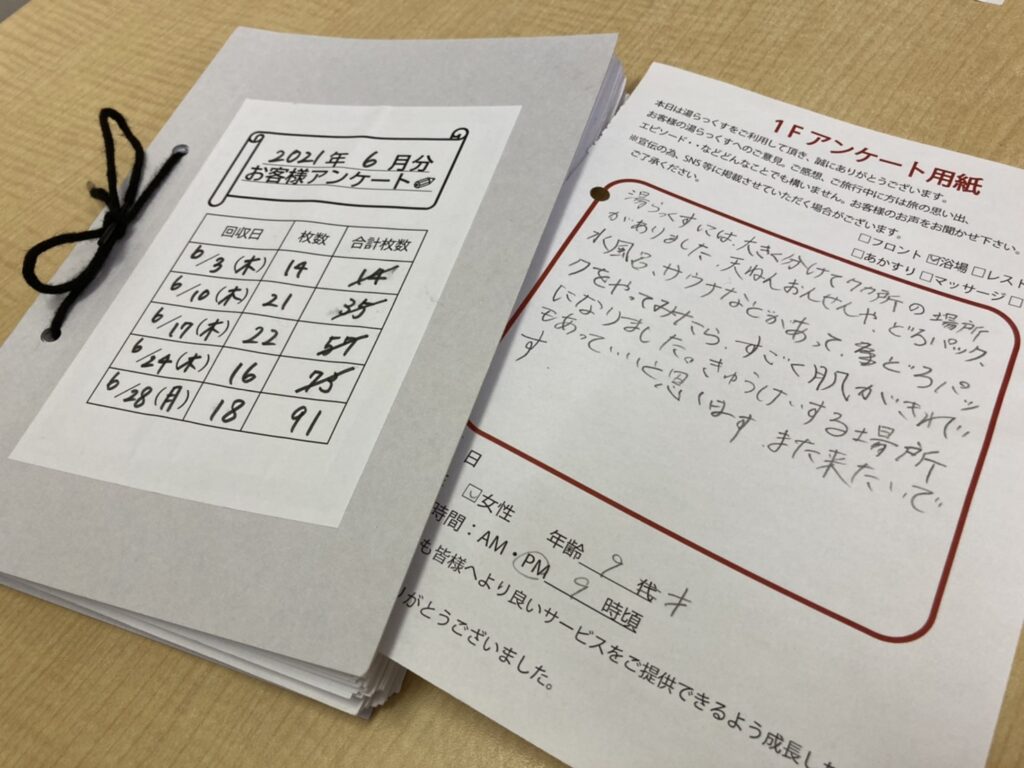 2021年 6月分
お客様アンケート
回収日 枚数 合計枚数
6/3(木) 14 14
6/10(木) 21 35
6/17(木) 22 57
6/24(木) 16 73
6/28(月) 18 91
1Fアンケート用紙
本日は湯らっくすをご利用して頂き、誠にありがとうございます。
お客様の湯らっくすへのご意見。ご感想、ご旅行中に方は旅の思い出、
エピソード・・などどんなことでも構いません。お客様のお声をお聞かせ下さい。
※宣伝の為、SNS等に掲載させていただく場合がございます。
ご了承ください。
□フロント ☑浴場 □レスト
□あかすり □マッサージ □
湯らくすには大きく分けて
の場所
がありました 天ねんおんせんや、どろパック、
水風呂、サウナなどがあって、
どろパッ
クをやってみたら、すごく肌がきれい
になりました。きゅうけいする場所
もあっていいと思います また来たいで
す
日
☑女性 年齢 9 代 才
時間:AM・PM 9 時頃
も皆様へより良いサービスをご提供できるよう成長した
りがとうございました。